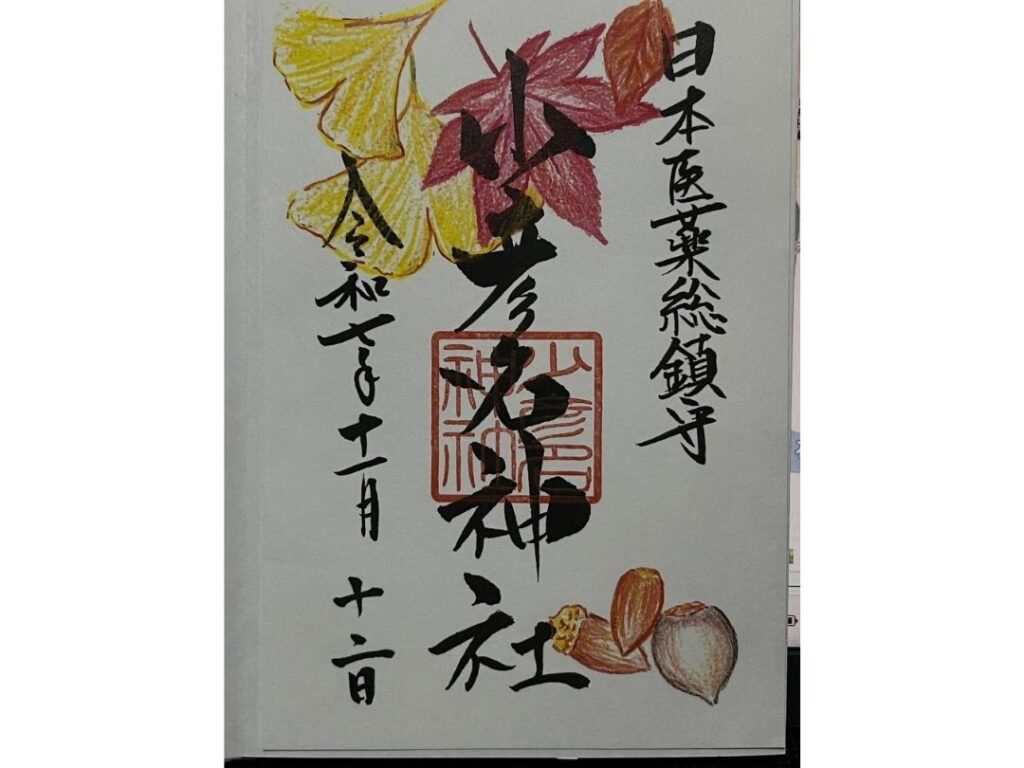 日本医薬総鎮守
少彦名神社
少彦名
神社
令和七年十一月 十二日